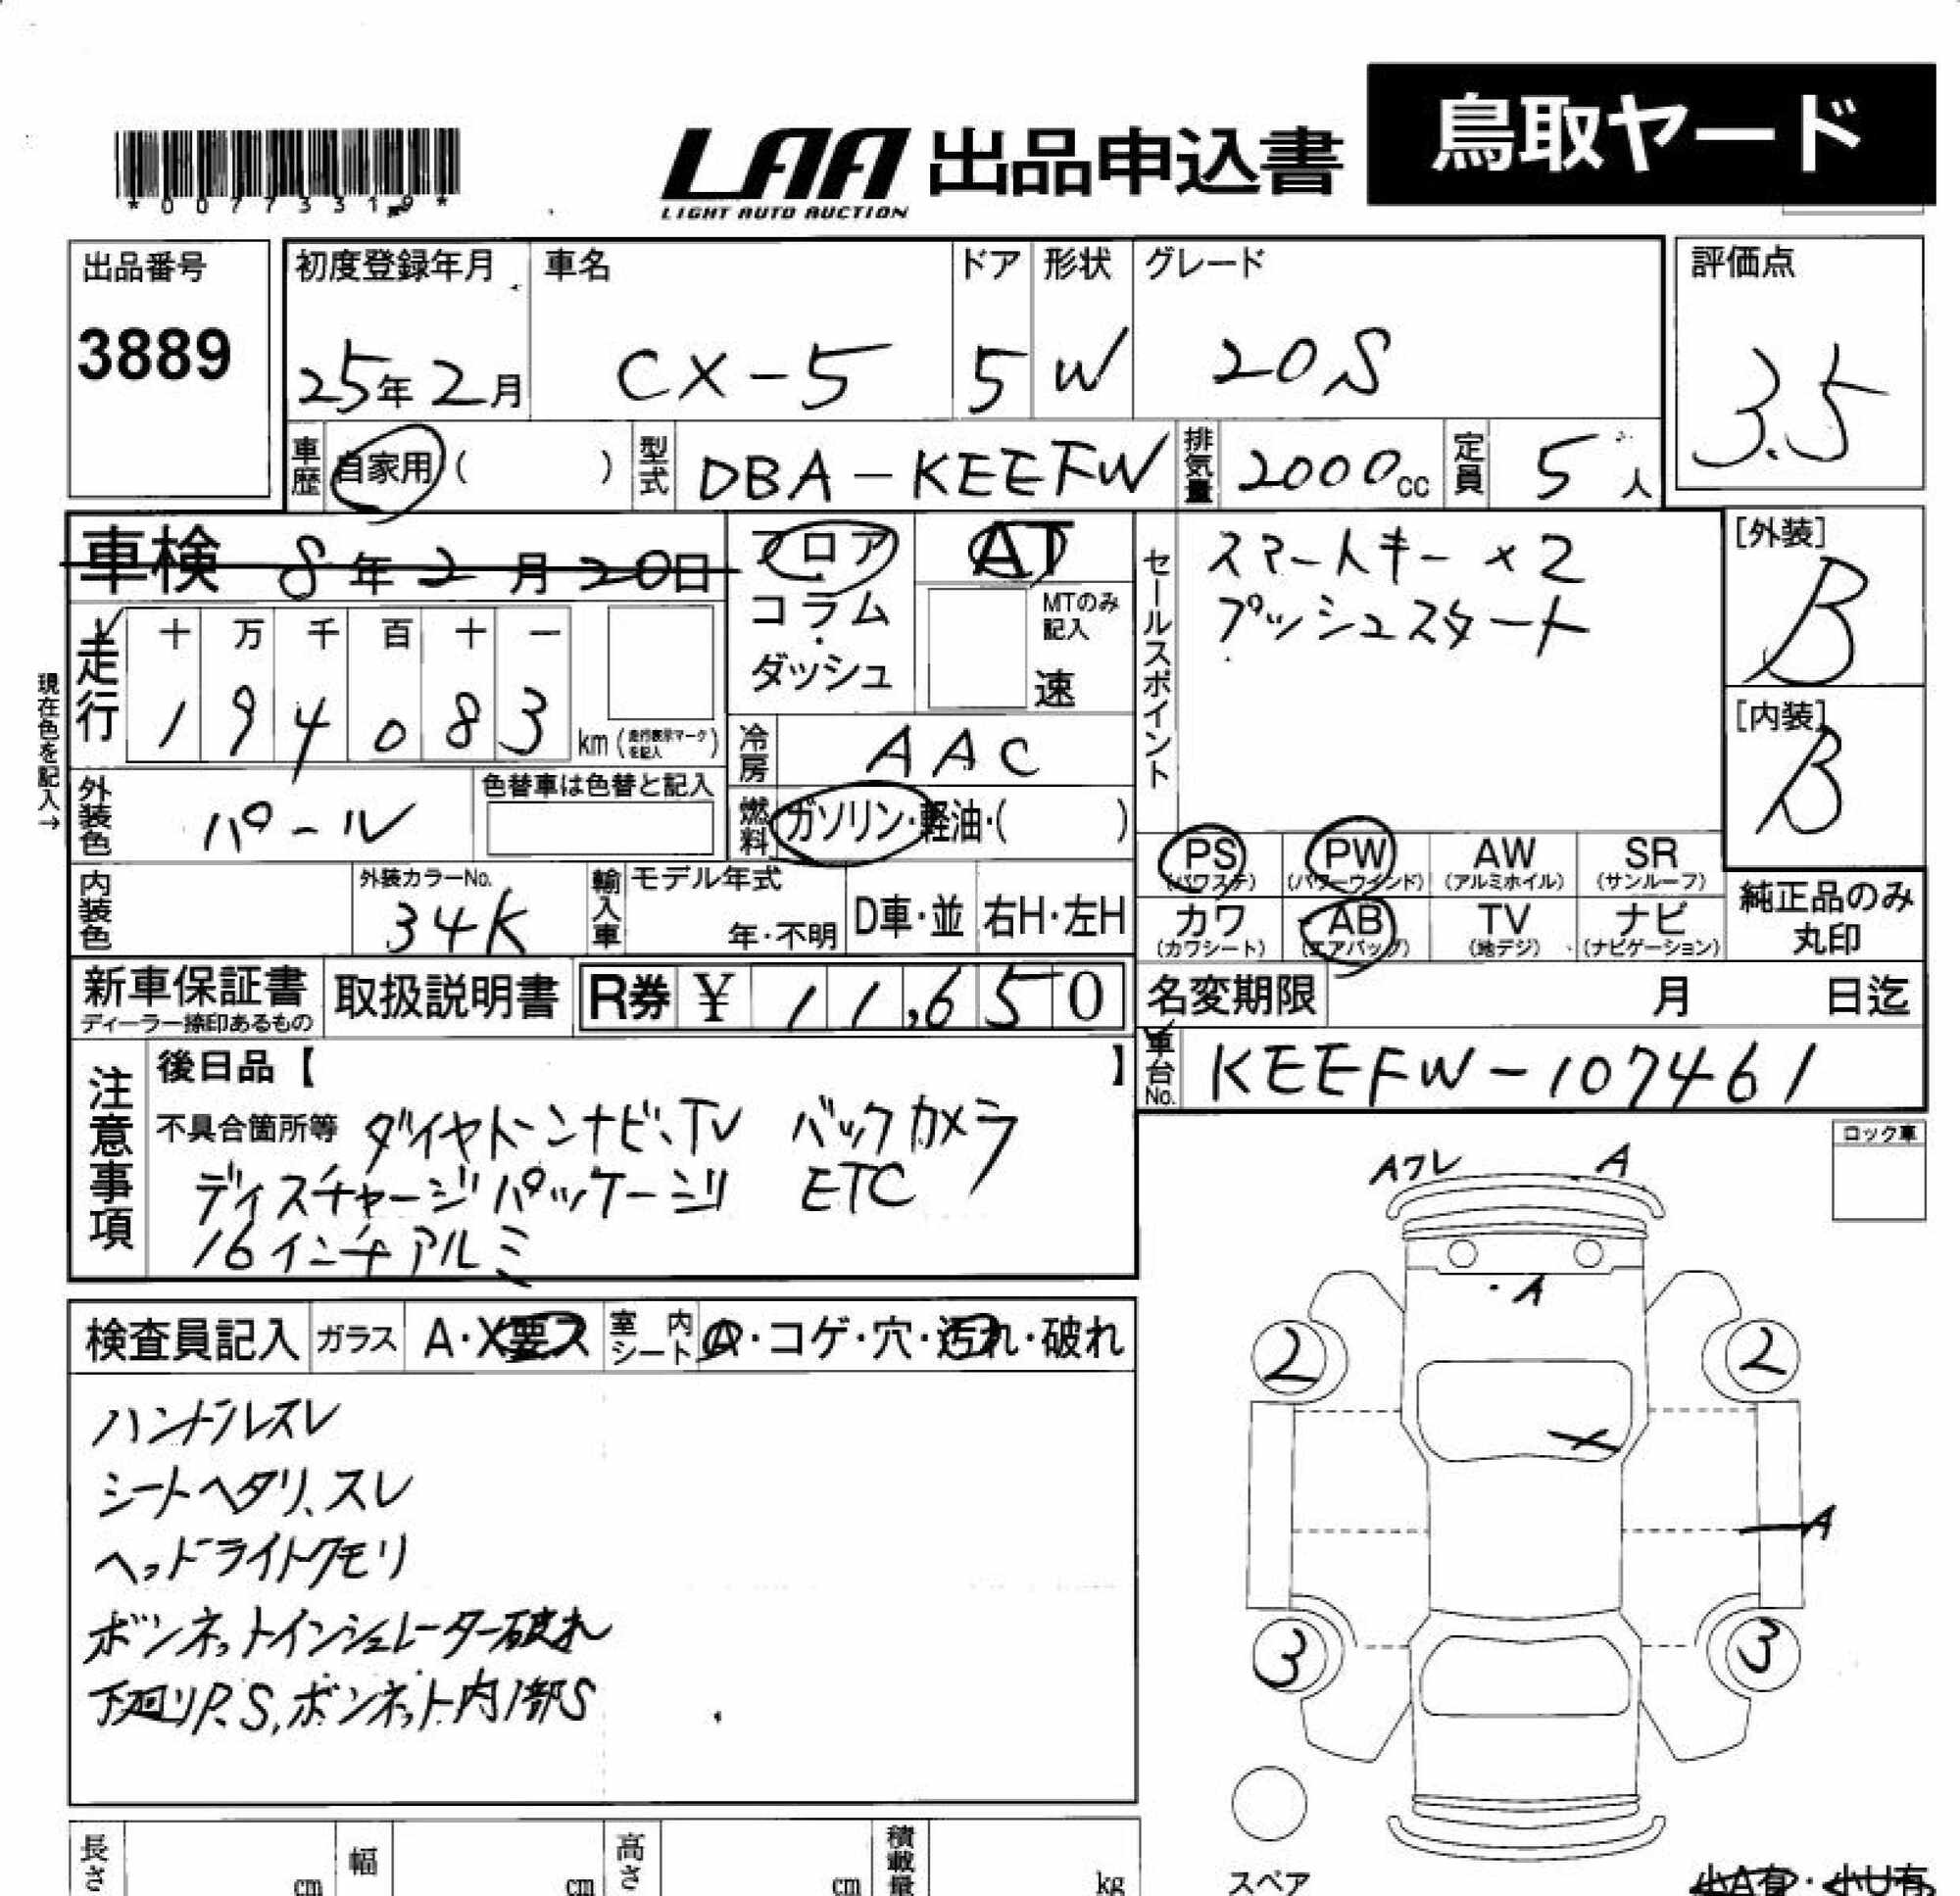 *00773319*
LAA 出品申込書
LIGHT AUTO AUCTION
鳥取ヤード
出品番号 3889
初度登録年月 25年2月
車名 CX-5
ドア 5
形状 W
グレード 20S
評価点 3.5
車歴 自家用( )
型式 DBA-KEEFW
排気量 2000cc
定員 5人
車検 8年2月20日
フロア
コラム・
ダッシュ
AT
MTのみ
記入
速
セールスポイント
スマートキー×2
プッシュスタート
[外装] B
[内装] B
現在色を記入→
走行
十 万 千 百 十 一
1 9 4 0 8 3 km(走行表示マークを記入)
冷房 AAC
外装色 パール
色替車は色替と記入
燃料 ガソリン・軽油・( )
PS (パワステ)
PW (パワーウインド)
AW (アルミホイル)
SR (サンルーフ)
カワ (カワシート)
AB (エアバッグ)
TV (地デジ)
ナビ (ナビゲーション)
純正品のみ
丸印
内装色
外装カラーNo. 34K
輸入車
モデル年式 年・不明
D車・並
右H・左H
新車保証書
ディーラー捺印あるもの
取扱説明書
R券 ¥ 11,650
名変期限 月 日迄
車台No. KEEFW-107461
注意事項
後日品【 】
不具合箇所等 ダイヤトーンナビ、TV バックカメラ
ディスチャージパッケージ ETC
16インチアルミ
ロック車
Aフレ A
A
2 2
X
A
3 3
検査員記入
ガラス A・X要ス
室内シート A・コゲ・穴・汚れ・破れ
ハンドルスレ
シートヘタリ、スレ
ヘッドライトクモリ
ボンネットインシュレーター破れ
下廻りP.S,ボンネット内1部S
長さ cm
幅 cm
高さ cm
積載量 kg
スペア
小A有・小U有